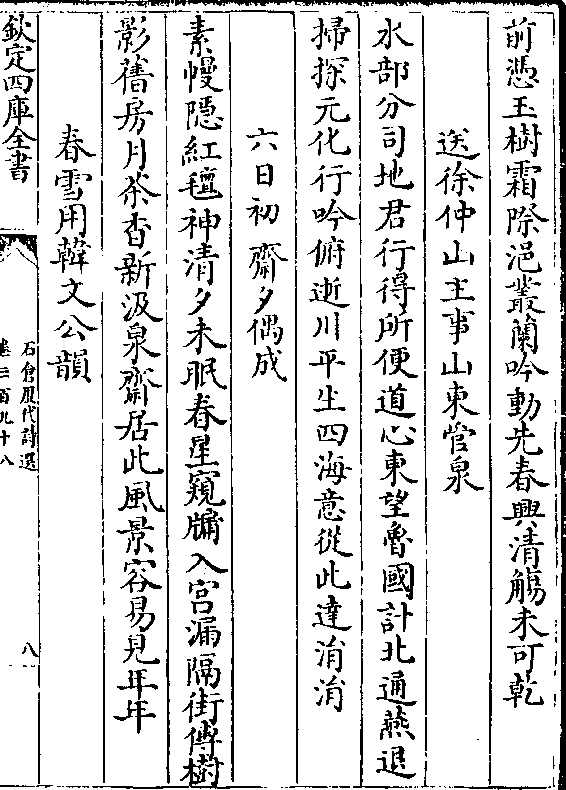 前憑玉樹霜際浥叢蘭吟動先春興清觴未可乾
送徐仲山主事山東管泉
水部分司地君行得所便道心東望魯國計北通燕退
掃探元化行吟俯逝川平生四海意從此達涓涓
六日初齋夕偶成
素幔隱紅氊神清夕未眠春星窺牖入宫漏隔街傳樹
影舊房月茶香新汲泉齋居此風景容易見年年
春雪用韓文公韻
欽定四庫全書
石倉歷代詩選
卷三百九十八
八